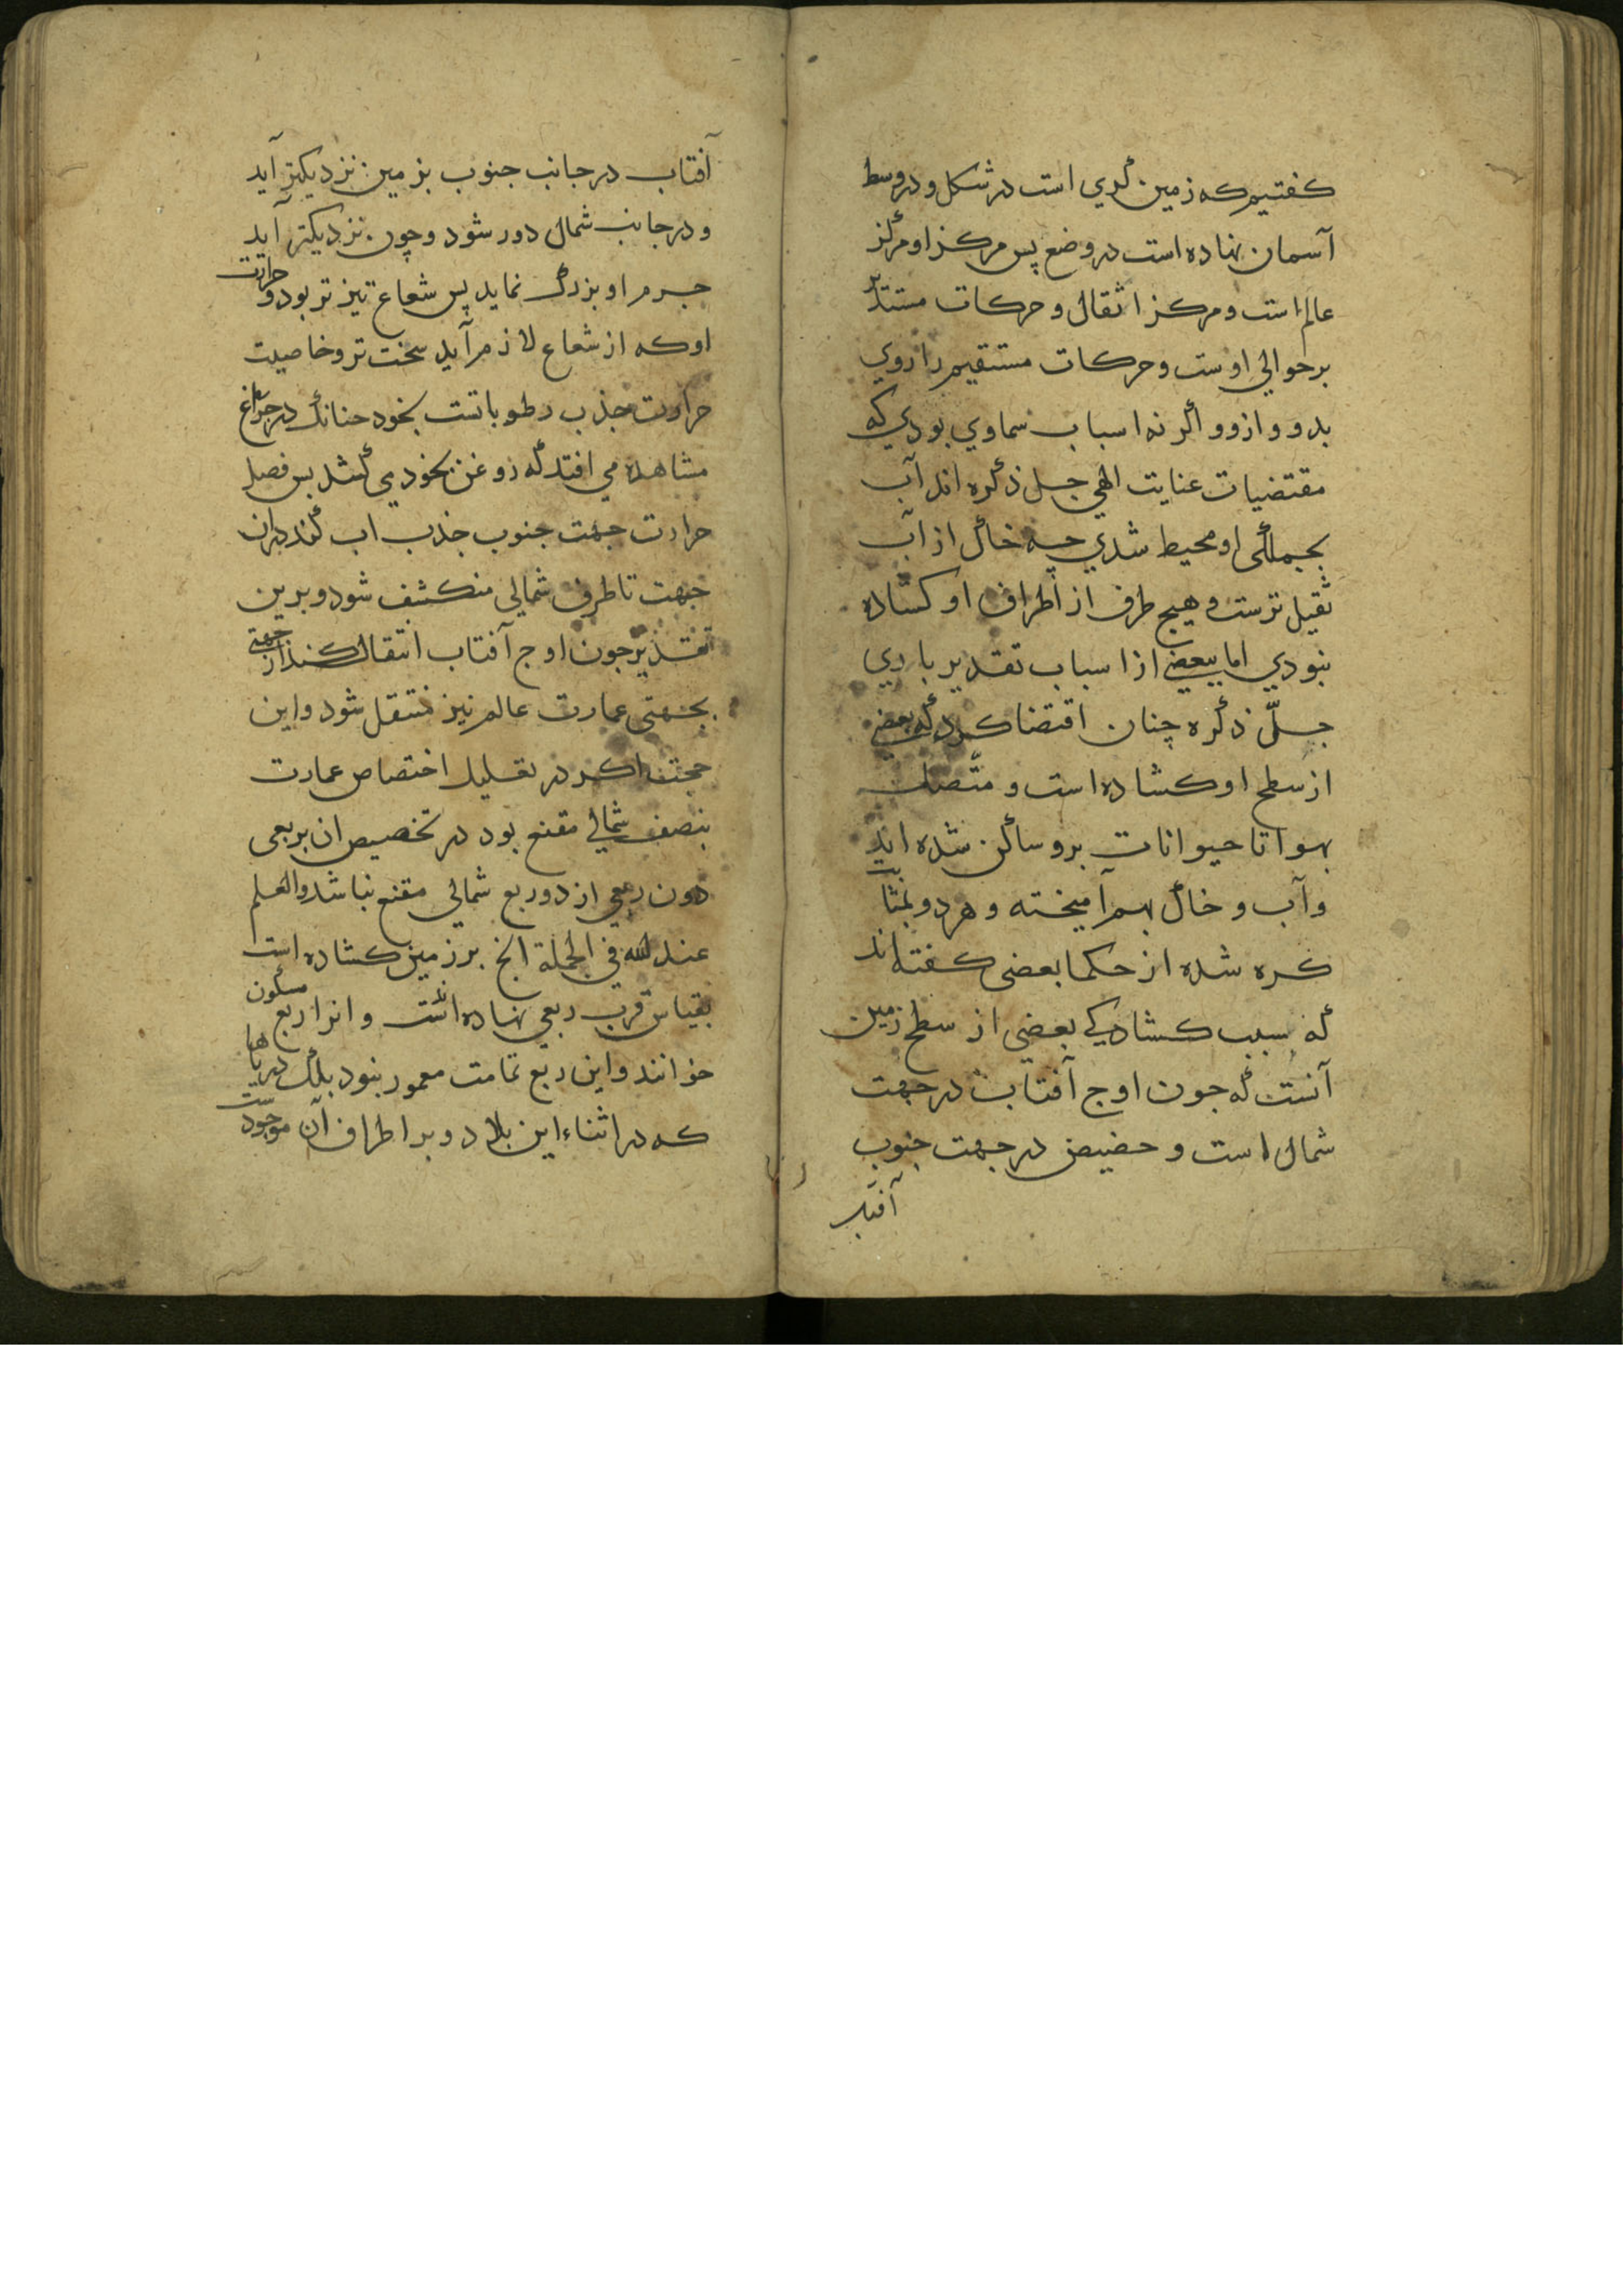 كفتيم كه زمين كري است در شكل و در وسط
آسمان نهاده است در وضع پس مركز او مركز
عالم است و مركز اثقال و حركات مستدير
بر حوالي اوست و حركات مستقيم را روي
بدو و ازو و اكر نه اسباب سماوي بودي كه
مقتضيات عنايت الهي جل ذكره اند آب
بجملكى او محيط شدي چه خاك از آب
ثقيل ترست و هيچ طرف از اطراف او كشاده
نبودي اما ببعضي از اسباب تقدير باري
جلّ ذكره چنان اقتضا كرد كه بعضي
از سطح او كشاده است و متّصل
بهوا تا حيوانات برو ساكن شده اند
وآب و خاك بهم آميخته و هر دو بمثابت
كره شده از حكما بعضى كفته اند
كه سبب كشادكي بعضي از سطح زمين
آنست كه جون اوج آفتاب در جهت
شمال است و حضيض در جهت جنوب
آفتاب
آفتاب در جانب جنوب بزمين نزديكتر آيد
و در جانب شمال دور شود وچون نزديكتر آيد
جرم او بزرك نمايد پس شعاع تيز تر بود و حرارت
او كه از شعاع لازم آيد سخت تر و خاصيت
حرارت جذب رطوباتست بخود جنانك در چراغ
مشاهده مي افتد كه روغن بخود مي كشد بس فصل
حرارت جهت جنوب جذب اب كند دران
جهت تا طرف شمالي منكشف شود و برين
تقدير جون اوج آفتاب انتقال كند از جهتى
بجهتى عمارت عالم نيز منتقل شود واين
حجت اكر در تعليل اختصاص عمارت
بنصف شمالي مقنع بود در تخصيص ان بربعى
دون ربعي از دو ربع شمالي مقنع نباشد والعلم
عند الله في الجملة انج بر زمين كشاده است
بقياس قرب ربعي نهاده اند و انرا ربع مسكون
خوانند واين ربع تمامت معمور نبود بلك درياها
كه در اثناء اين بلاد و بر اطراف آن موجودست